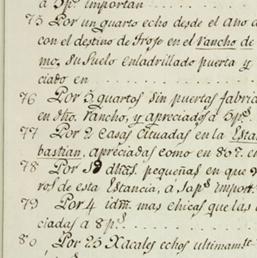 a 3p.s importan
75 Por un quarto echo desde el Año d
con el destino de Troje en el rancho de
mo, su Suelo enladrillado puerta y
ciado en
76 Por 3 quartos sin puertas fabric
en dho. rancho, y apreciados a 5p.s
77 Por 2 Casas cituadas en la Esta
bastian, apreciadas como en 80r. en
78 Por dhas. pequeñas en que
ros de esta Estancia, a 10p.s import.
79 Por 4 idm. mas chicas que las
ciadas a 8p.s
80 Por 25 Xacales echos ultimamte.